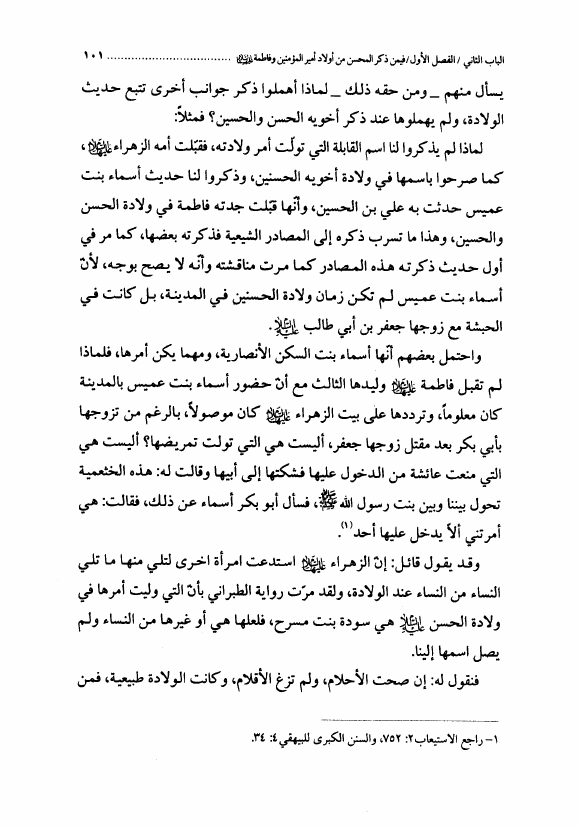 الباب الثاني / الفصل الأول / فيمن ذكر المحسن من أولاد أمير المؤمنين وفاطمة عليها السلام .................................. ١٠١
يسأل منهم _ ومن حقه ذلك _ لماذا أهملوا ذكر جوانب أخرى تتبع حديث
الولادة، ولم يهملوها عند ذكر أخويه الحسن والحسين؟ فمثلاً:
لماذا لم يذكروا لنا اسم القابلة التي تولّت أمر ولادته، فقبّلت أمه الزهراء عليها السلام،
كما صرحوا باسمها في ولادة أخويه الحسنين، وذكروا لنا حديث أسماء بنت
عميس حدثت به علي بن الحسين، وأنّها قبّلت جدته فاطمة في ولادة الحسن
والحسين، وهذا ما تسرب ذكره إلى المصادر الشيعية فذكرته بعضها، كما مر في
أول حديث ذكرته هذه المصادر كما مرت مناقشته وأنّه لا يصح بوجه، لأنّ
أسماء بنت عميس لم تكن زمان ولادة الحسنين في المدينة، بل كانت في
الحبشة مع زوجها جعفر بن أبي طالب عليه السلام.
واحتمل بعضهم أنّها أسماء بنت السكن الأنصارية، ومهما يكن أمرها، فلماذا
لم تقبل فاطمة عليها السلام وليدها الثالث مع أنّ حضور أسماء بنت عميس بالمدينة
كان معلوماً، وترددها على بيت الزهراء عليها السلام كان موصولاً، بالرغم من تزوجها
بأبي بكر بعد مقتل زوجها جعفر، أليست هي التي تولت تمريضها؟ أليست هي
التي منعت عائشة من الدخول عليها فشكتها إلى أبيها وقالت له: هذه الخثعمية
تحول بيننا وبين بنت رسول الله صلى الله عليه وآله وسلم، فسأل أبو بكر أسماء عن ذلك، فقالت: هي
أمرتني ألاّ يدخل عليها أحد(١).
وقد يقول قائل: إنّ الزهراء عليها السلام استدعت امرأة اخرى لتلي منها ما تلي
النساء من النساء عند الولادة، ولقد مرّت رواية الطبراني بأنّ التي وليت أمرها في
ولادة الحسن عليه السلام هي سودة بنت مسرح، فلعلها هي أو غيرها من النساء ولم
يصل اسمها إلينا.
فنقول له: إن صحت الأحلام، ولم تزغ الأقلام، وكانت الولادة طبيعية، فمن
١- راجع الاستيعاب ٢: ٧٥٢، والسنن الكبرى للبيهقي ٤: ٣٤.